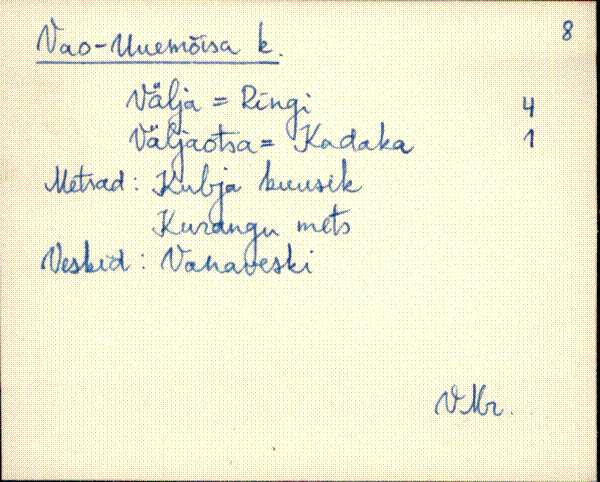 8
Vao-Uuemõisa k.
Välja = Ringi 4
Väljaotsa = Kadaka 1
Metsad: Kubja kuusik
Kurangu mets
Veskid: Vanaveski
VMr.